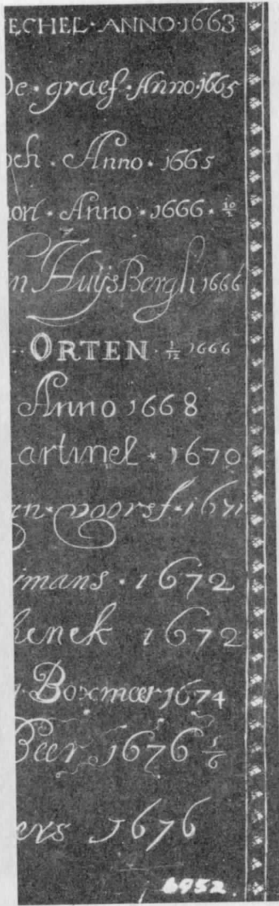 ECHEL · ANNO · 1663
De · graef · Anno · 1665
och · Anno · 1665
Anno · 1666 · 10/5
n HuijsBergh 1666
ORTEN · 1/12 1666
Anno 1668
artinel · 1670
en · voorst · 1671
imans · 1672
henek 1672
Boxmeer 1674
Beer 1676 5/6
ers 1676
6952